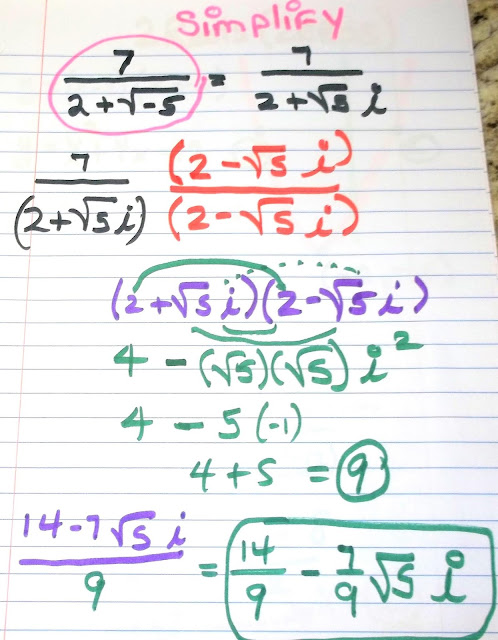 Simplify
7/(2+√-5) = 7/(2+√5 i)
7/(2+√5 i) (2-√5 i)/(2-√5 i)
(2+√5 i)(2-√5 i)
4 - (√5)(√5) i²
4 - 5(-1)
4+5 = 9
(14-7√5 i)/9 = 14/9 - 7/9 √5 i